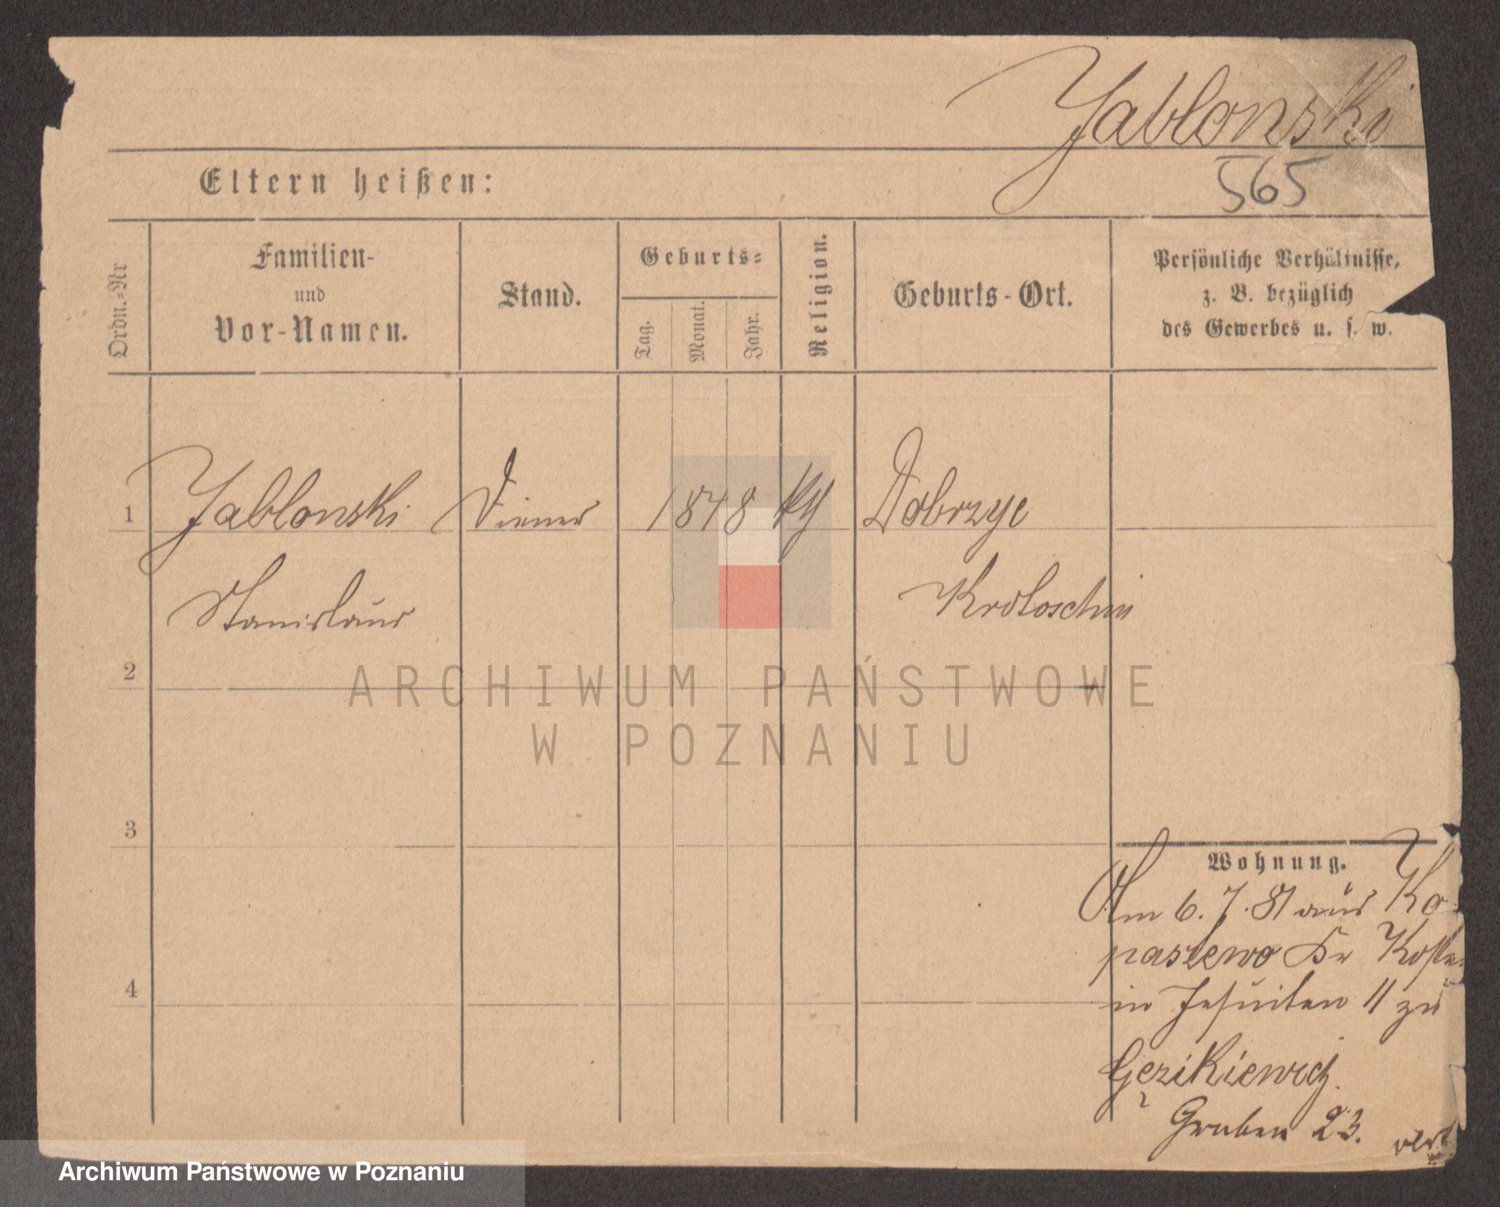 Jablonski
565
Eltern heißen:
Ordn.=Nr
Familien-
und
Vor-Namen.
Stand.
Geburts=
Tag.
Monat.
Jahr.
Religion.
Geburts-Ort.
Persönliche Verhältnisse,
z. B. bezüglich
des Gewerbes u. s. w.
1 Jablonski Diener 1848 Dobrzyc
Stanislaus Krotoschin
2
ARCHIWUM PAŃSTWOWE
W POZNANIU
3
Wohnung.
Am 6. 7. 81 aus Ko-
paszewo Kr Kosten
in Jesuiten 11 zu
4
Graben 23.
Archiwum Państwowe w Poznaniu